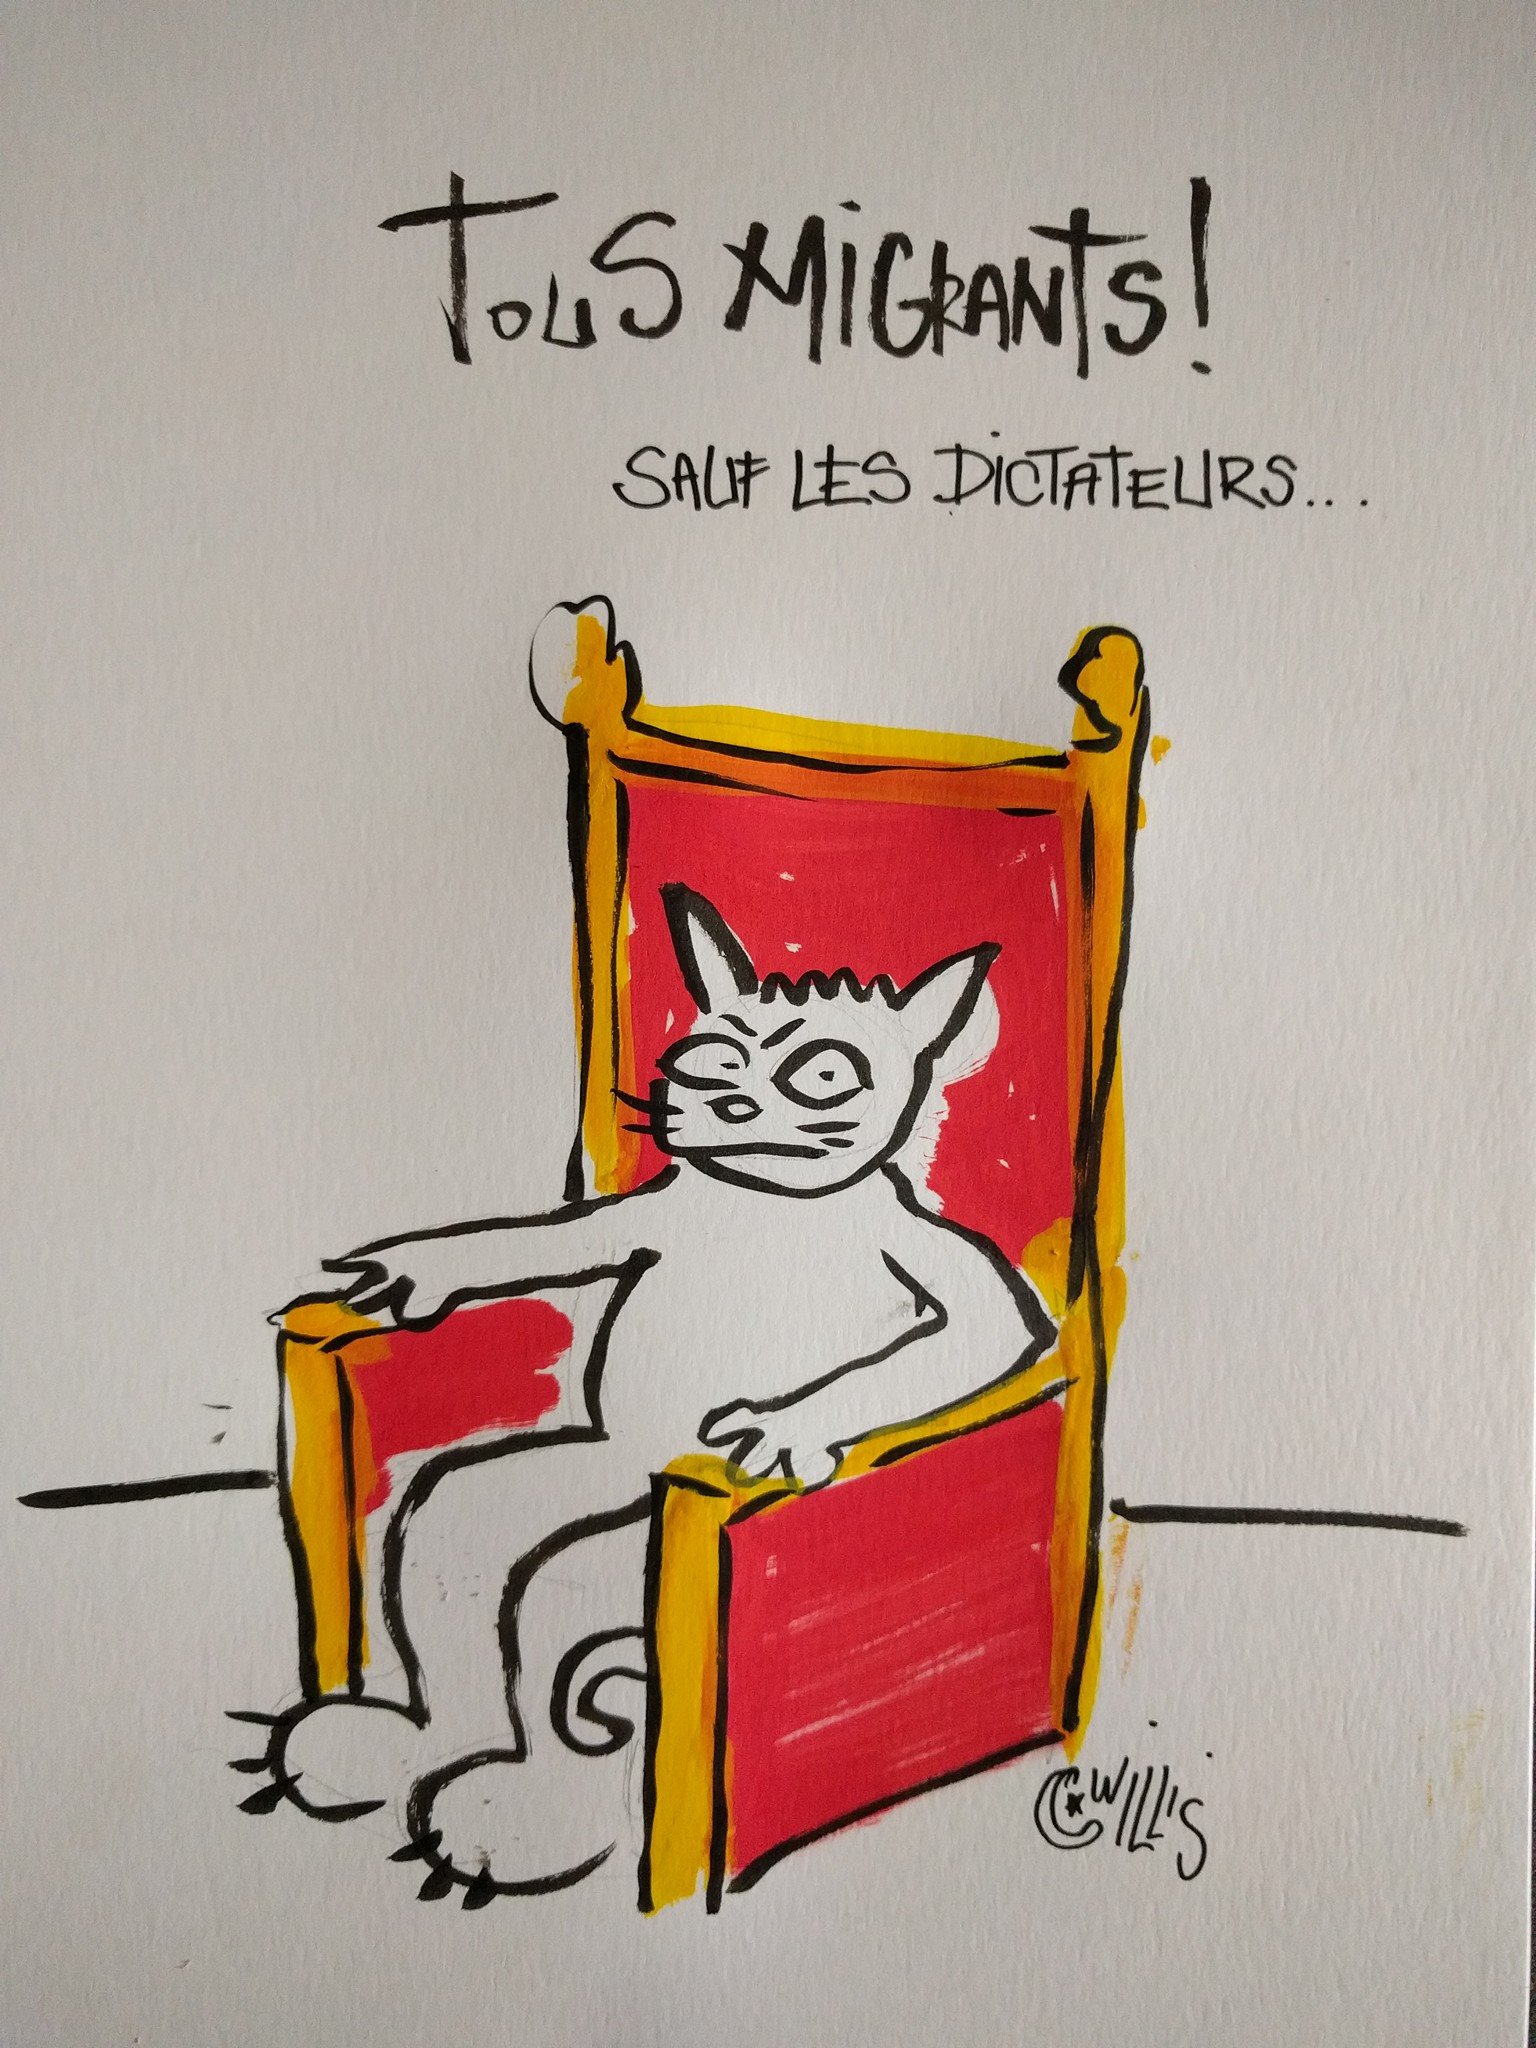 TOUS MIGRANTS!
SAUF LES DICTATEURS...
WILLIS